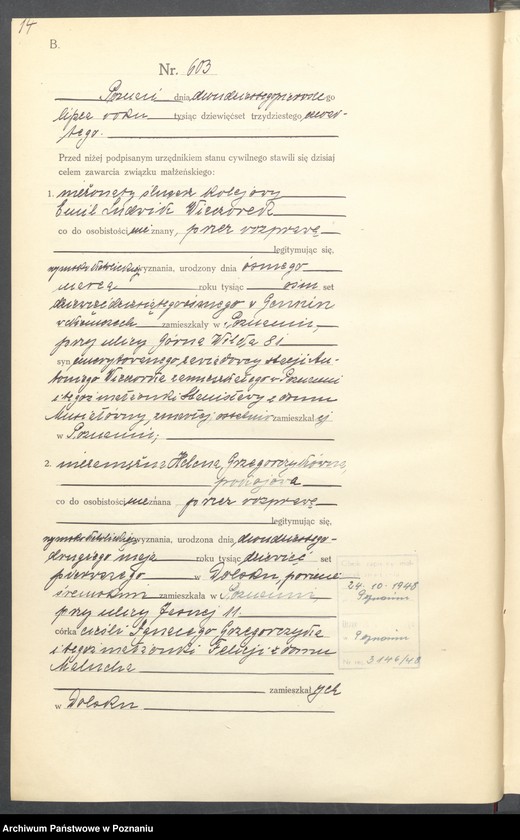 14
B.
Nr. 603
Poznań dnia dwudziestego pierwszego
lipca roku tysiąc dziewięćset trzydziestego
tego.
Przed niżej podpisanym urzędnikiem stanu cywilnego stawili się dzisiaj
celem zawarcia związku małżeńskiego:
1. nieżonaty ślusarz kolejowy
Emil Ludwik Wieczorek
co do osobistości nieznany, przez rozprawę
legitymując się,
rzymsko katolickiego wyznania, urodzony dnia ósmego
marca roku tysiąc osiem set
dziewięćdziesiątego ósmego w
w Niemczech zamieszkały w Poznaniu,
przy ulicy Górna Wilda 81
syn emerytowanego zawiadowcy stacji An-
toniego Wieczorka zamieszkałego w Poznaniu
i tegoż małżonki Stanisławy z domu
zmarłej ostatnio zamieszkałej
w Poznaniu;
2. niezamężna Helena Grzegorczykówna,
co do osobistości nieznana przez rozprawę
legitymując się,
rzymsko katolickiego wyznania, urodzona dnia dwudziestego
drugiego maja roku tysiąc dziewięć set
pierwszego w Dolsku, powiecie
śremskim zamieszkała w Poznaniu,
przy ulicy Jasnej 11.
córka cieśli Ignacego Grzegorczyka
i tegoż małżonki Felicji z domu
Malucha
zamieszkałych
w Dolsku
24.10.1948
Poznaniu
w Poznaniu
Nr 3146/48
Archiwum Państwowe w Poznaniu